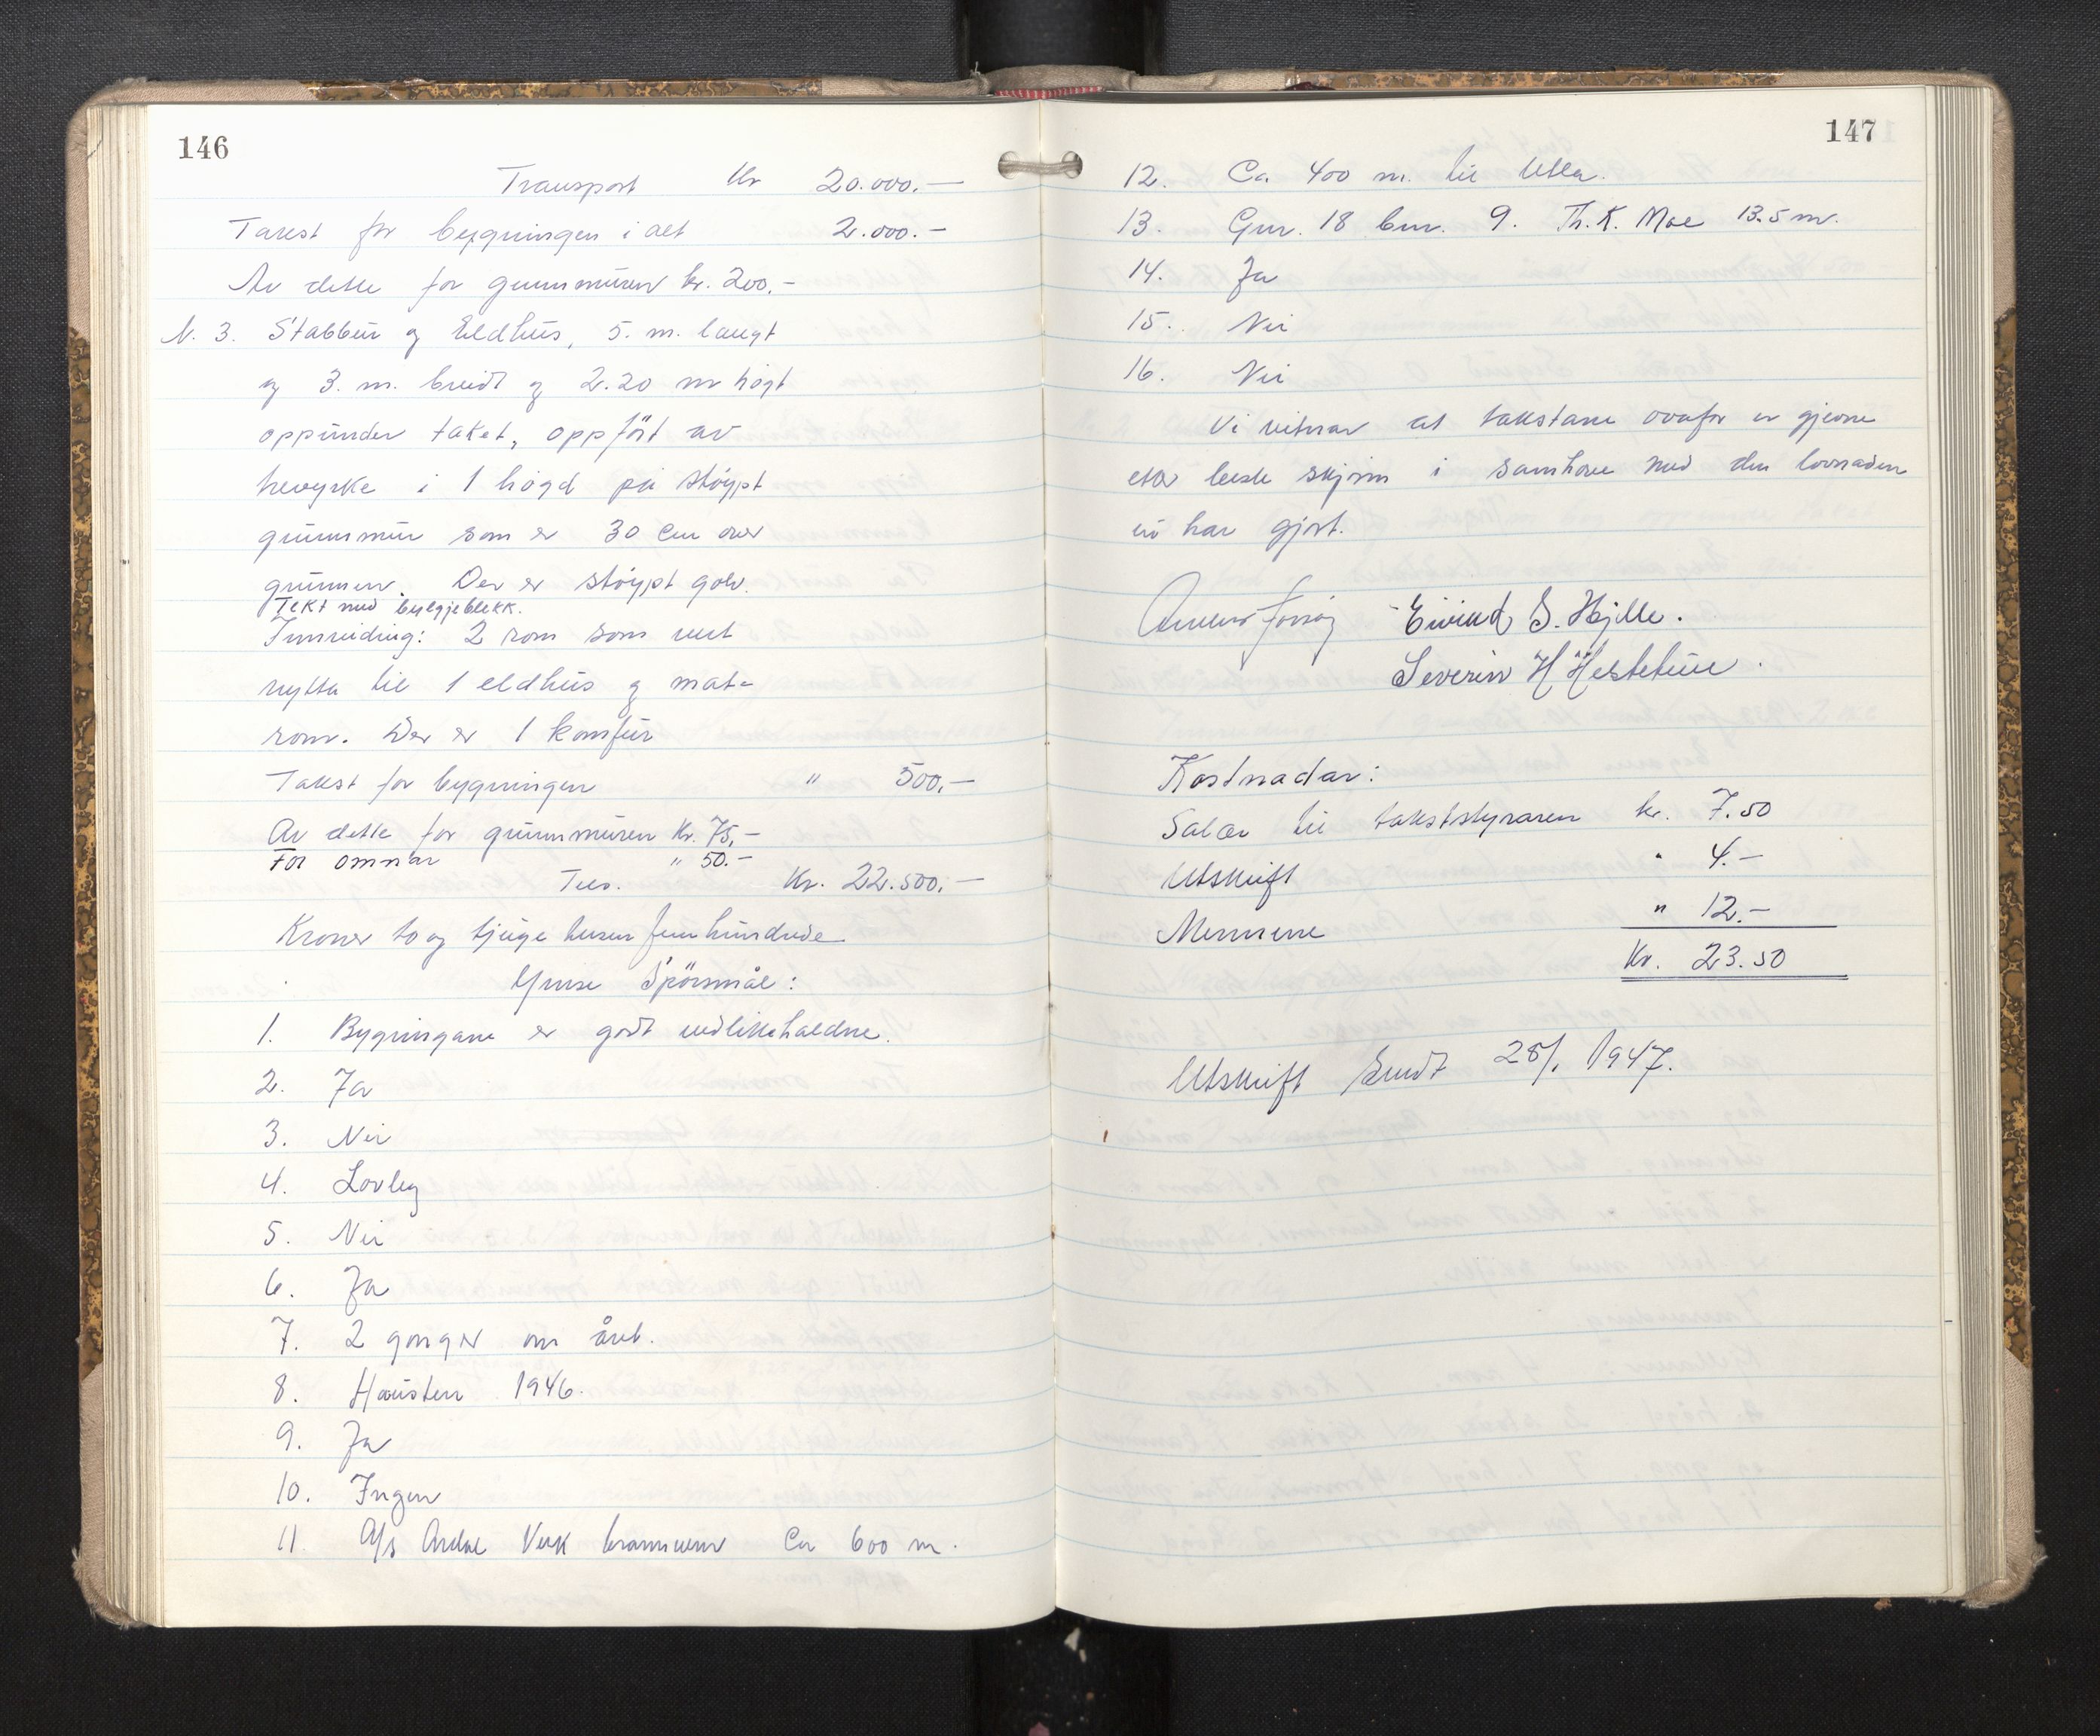 146
Transport Kr 20.000.—
Takst for bygningen i alt 2.000.—
Av dette for grunnmuren kr. 200.-
N. 3. Stabbur og Eldhus, 5. m. langt
og 3. m. breidt og 2.20 m högt
oppunder taket, oppfört av
trevyrke i 1 högd på støypt
grunnmur som er 30 cm over
grunnen. Der er støypt golv.
Tekt med bylgjeblekk.
Innreiding: 2 rom som vert
nytta til 1 eldhus og mat-
rom. Der er 1 komfur
Takst for bygningen " 500,—
Av dette for grunnmuren Kr. 75,—
For omnar " 50.—
Tils. Kr. 22.500,—
Kroner to og tjuge tusen fem hundrede
Ymse Spörsmål:
1. Bygningane er godt vedlikehaldne.
2. Ja
3. Nei
4. Lovleg
5. Nei
6. Ja
7. 2 gonger om året.
8. Hausten 1946.
9. Ja
10. Ingen
11. A/s Årdal Verk brannvern Ca 600 m.
147
12. Ca. 400 m. til Utla.
13. Gnr. 18 bnr. 9. Th. K. Moe 13.5 m.
14. Ja
15. Nei
16. Nei
Vi vitnar at takstane ovafor er gjevne
etter beste skjönn i samhøve med den lovnaden
vi har gjort.
Eivind S. Hjelle.
Severin H Hestetun.
Kostnadar:
Salær til takststyraren kr. 7.50
Utskrift " 4.—
Mennene " 12.—
Kr. 23.50
Utskrift Sendt 28/1 1947.